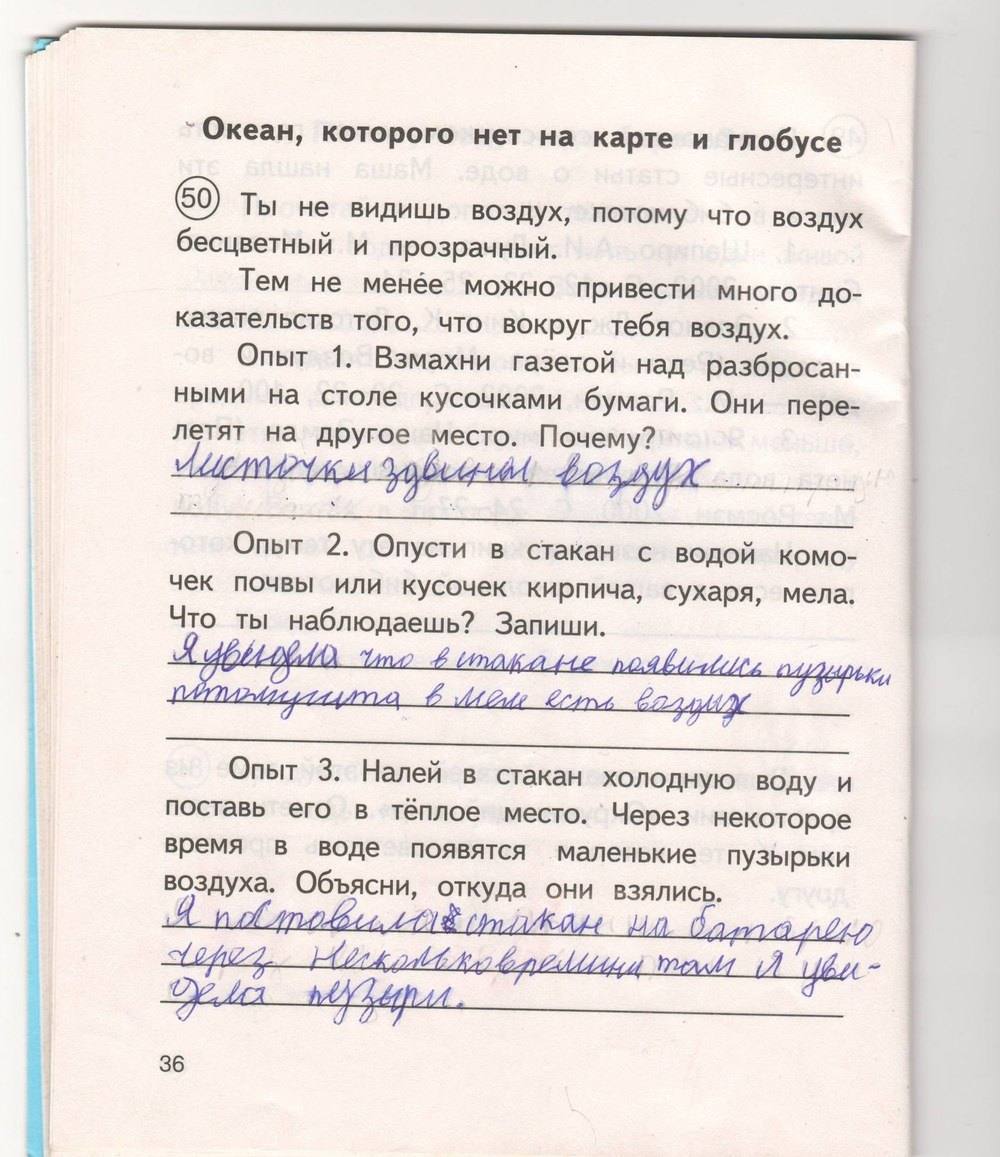 Океан, которого нет на карте и глобусе
50 Ты не видишь воздух, потому что воздух
бесцветный и прозрачный.
Тем не менéе можно привести много до-
казательств того, что вокруг тебя воздух.
Опыт 1. Взмахни газетой над разбросан-
ными на столе кусочками бумаги. Они пере-
летят на другое место. Почему?
Листочки здвинал воздух
Опыт 2. Опусти в стакан с водой комо-
чек почвы или кусочек кирпича, сухаря, мела.
Что ты наблюдаешь? Запиши.
Я увидела что в стакане появились пузырьки
потомушта в меле есть воздух
Опыт 3. Налей в стакан холодную воду и
поставь его в тёплое место. Через некоторое
время в воде появятся маленькие пузырьки
воздуха. Объясни, откуда они взялись.
Я поставила стакан на батарею
через несколько времини там я уви-
дела пузыри.
36